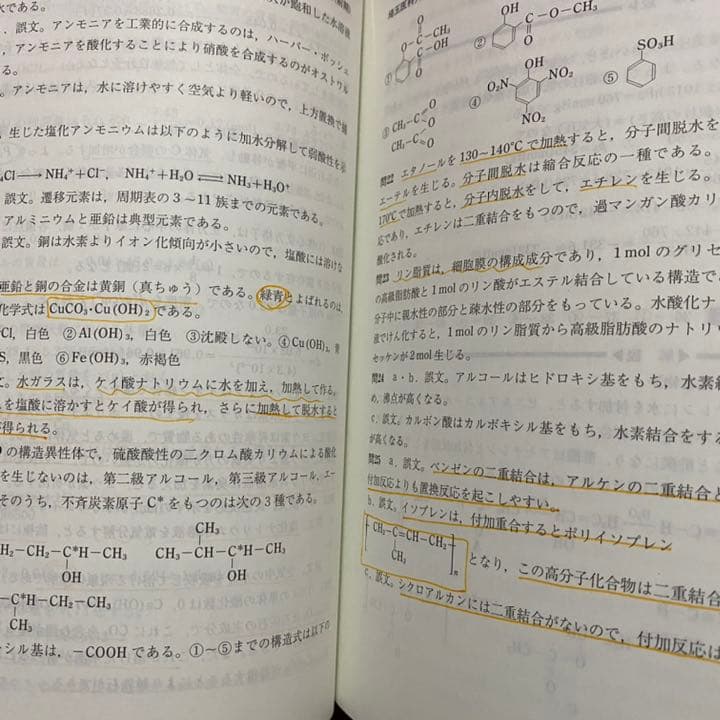 水である。
が飽和した水溶液
．誤文。アンモニアを工業的に合成するのは，ハーバー・ボッシュ
，アンモニアを酸化することにより硝酸を合成するのがオストワル
る。
。アンモニアは，水に溶けやすく空気より軽いので，上方置換で捕
，生じた塩化アンモニウムは以下のように加水分解して弱酸性を示
₄Cl⟶NH₄⁺+Cl⁻, NH₄⁺+H₂O⇄NH₃+H₃O⁺
誤文。遷移元素は，周期表の3～11族までの元素である。
アルミニウムと亜鉛は典型元素である。
誤文。銅は水素よりイオン化傾向が小さいので，塩酸には溶けな
亜鉛と銅の合金は黄銅（真ちゅう）である。緑青とよばれるのは，
化学式はCuCO₃・Cu(OH)₂である。
Cl, 白色 ②Al(OH)₃, 白色 ③沈殿しない。④Cu(OH)₂, 青
S, 黒色 ⑥Fe(OH)₃, 赤褐色
文。水ガラスは，ケイ酸ナトリウムに水を加え，加熱して作る。
を塩酸に溶かすとケイ酸が得られ，さらに加熱して脱水すると
が得られる。
の構造異性体で，硫酸酸性の二クロム酸カリウムによる酸化
を生じないのは，第二級アルコール，第三級アルコール，エー
そのうち，不斉炭素原子C*をもつのは次の3種である。
CH₃
H₂-CH₂-C*H-CH₃ CH₃-CH-C*H-CH₃
OH OH
-C*H-CH₂-CH₃
CH₃
シル基は，-COOHである。①～⑤までの構造式は以下の
埼玉医科
① O C-O-C-CH₃ C-OH O O
② OH C-O-CH₃ O
③ CH₃-C O O CH₃-C O
④ OH O₂N NO₂ NO₂
⑤ SO₃H
問22 エタノールを130～140℃で加熱すると，分子間脱水を
エーテルを生じる。分子間脱水は縮合反応の一種である。
170℃で加熱すると，分子内脱水をして，エチレンを生じる。
応であり，エチレンは二重結合をもつので，過マンガン酸カリ
酸化される。
問23 リン脂質は，細胞膜の構成成分であり，1molのグリセ
の高級脂肪酸と1molのリン酸がエステル結合している構造であ
分子中に親水性の部分と疎水性の部分をもっている。水酸化ナ
液でけん化すると，1molのリン脂質から高級脂肪酸のナトリ
セッケンが2mol生じる。
問24 a・b．誤文。アルコールはヒドロキシ基をもち，水素結
め，沸点が高くなる。
c．誤文。カルボン酸はカルボキシル基をもち，水素結合をする
が高くなる。
問25 a．誤文。ベンゼンの二重結合は，アルケンの二重結合と
付加反応よりも置換反応を起こしやすい。
b．誤文。イソプレンは，付加重合するとポリイソプレン
[CH₂-C=CH-CH₂]ₙ となり，この高分子化合物は二重結合
CH₃
c．誤文。シクロアルカンには二重結合がないので，付加反応は